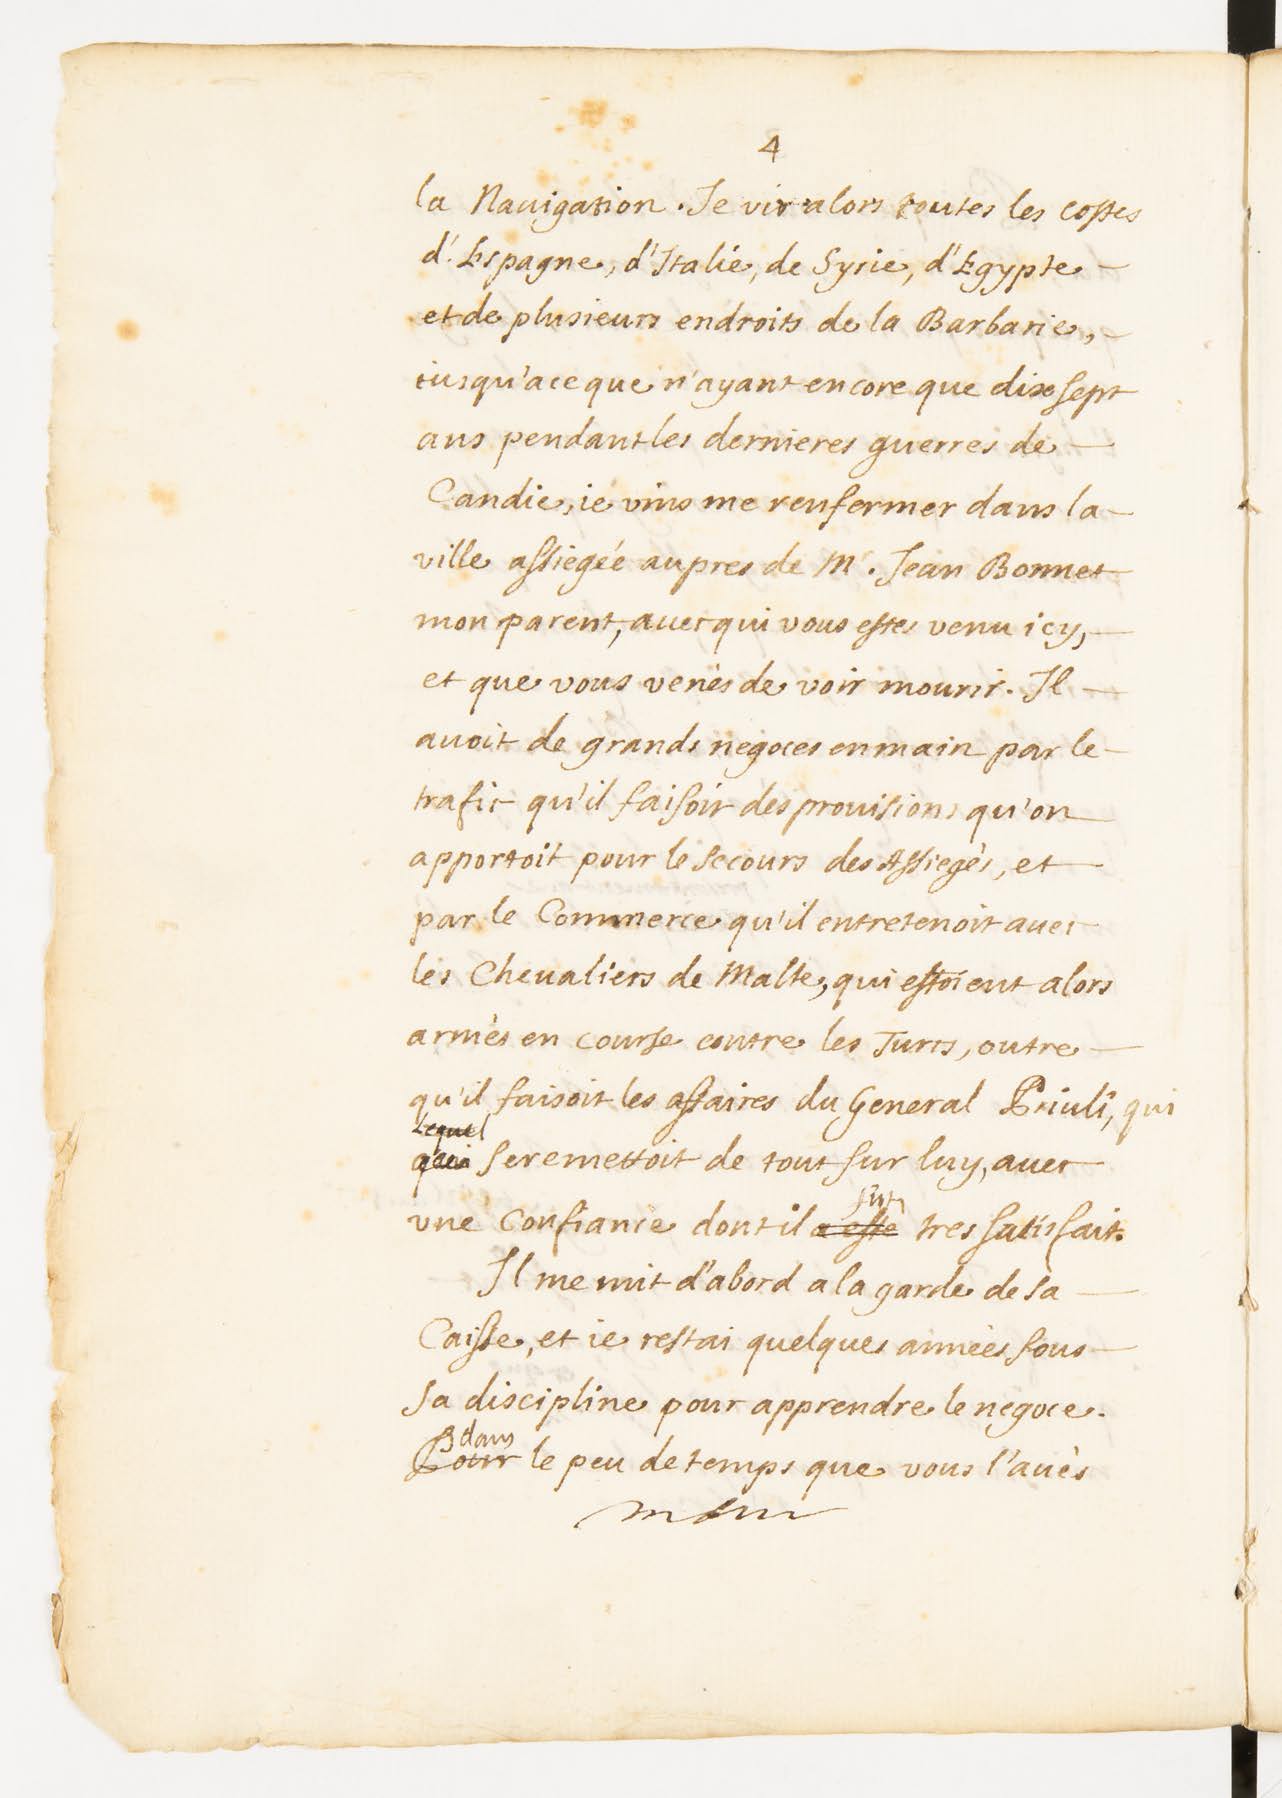 4
la Nauigation. Je vis alors toutes les costes
d'Espagne, d'Italie, de Syrie, d'Egypte
et de plusieurs endroits de la Barbarie,
iusqu'a ce que n'ayant encore que dixsept
ans pendant les dernieres guerres de
Candie, ie vins me renfermer dans la
ville assiegée aupres de Mr. Jean Bonnet
mon parent, auec qui vous estes venu icy,
et que vous venès de voir mourir. Il
auoit de grands negoces en main par le
trafic qu'il faisoit des prouisions qu'on
apportoit pour le secours des Assiegès, et
par le Commerce qu'il entretenoit auec
les Cheualiers de Malte, qui estoient alors
armès en course contre les Turcs, outre
qu'il faisoit les affaires du General Priuli, qui
Lequel
qui se remettoit de tout sur luy, auec
fut
vne Confiance dont il a esté tres satisfait.
Il me mit d'abord a la garde de sa
Caisse, et ie restai quelques années sous
sa discipline pour apprendre le negoce.
dans
Pour le peu de temps que vous l'auès